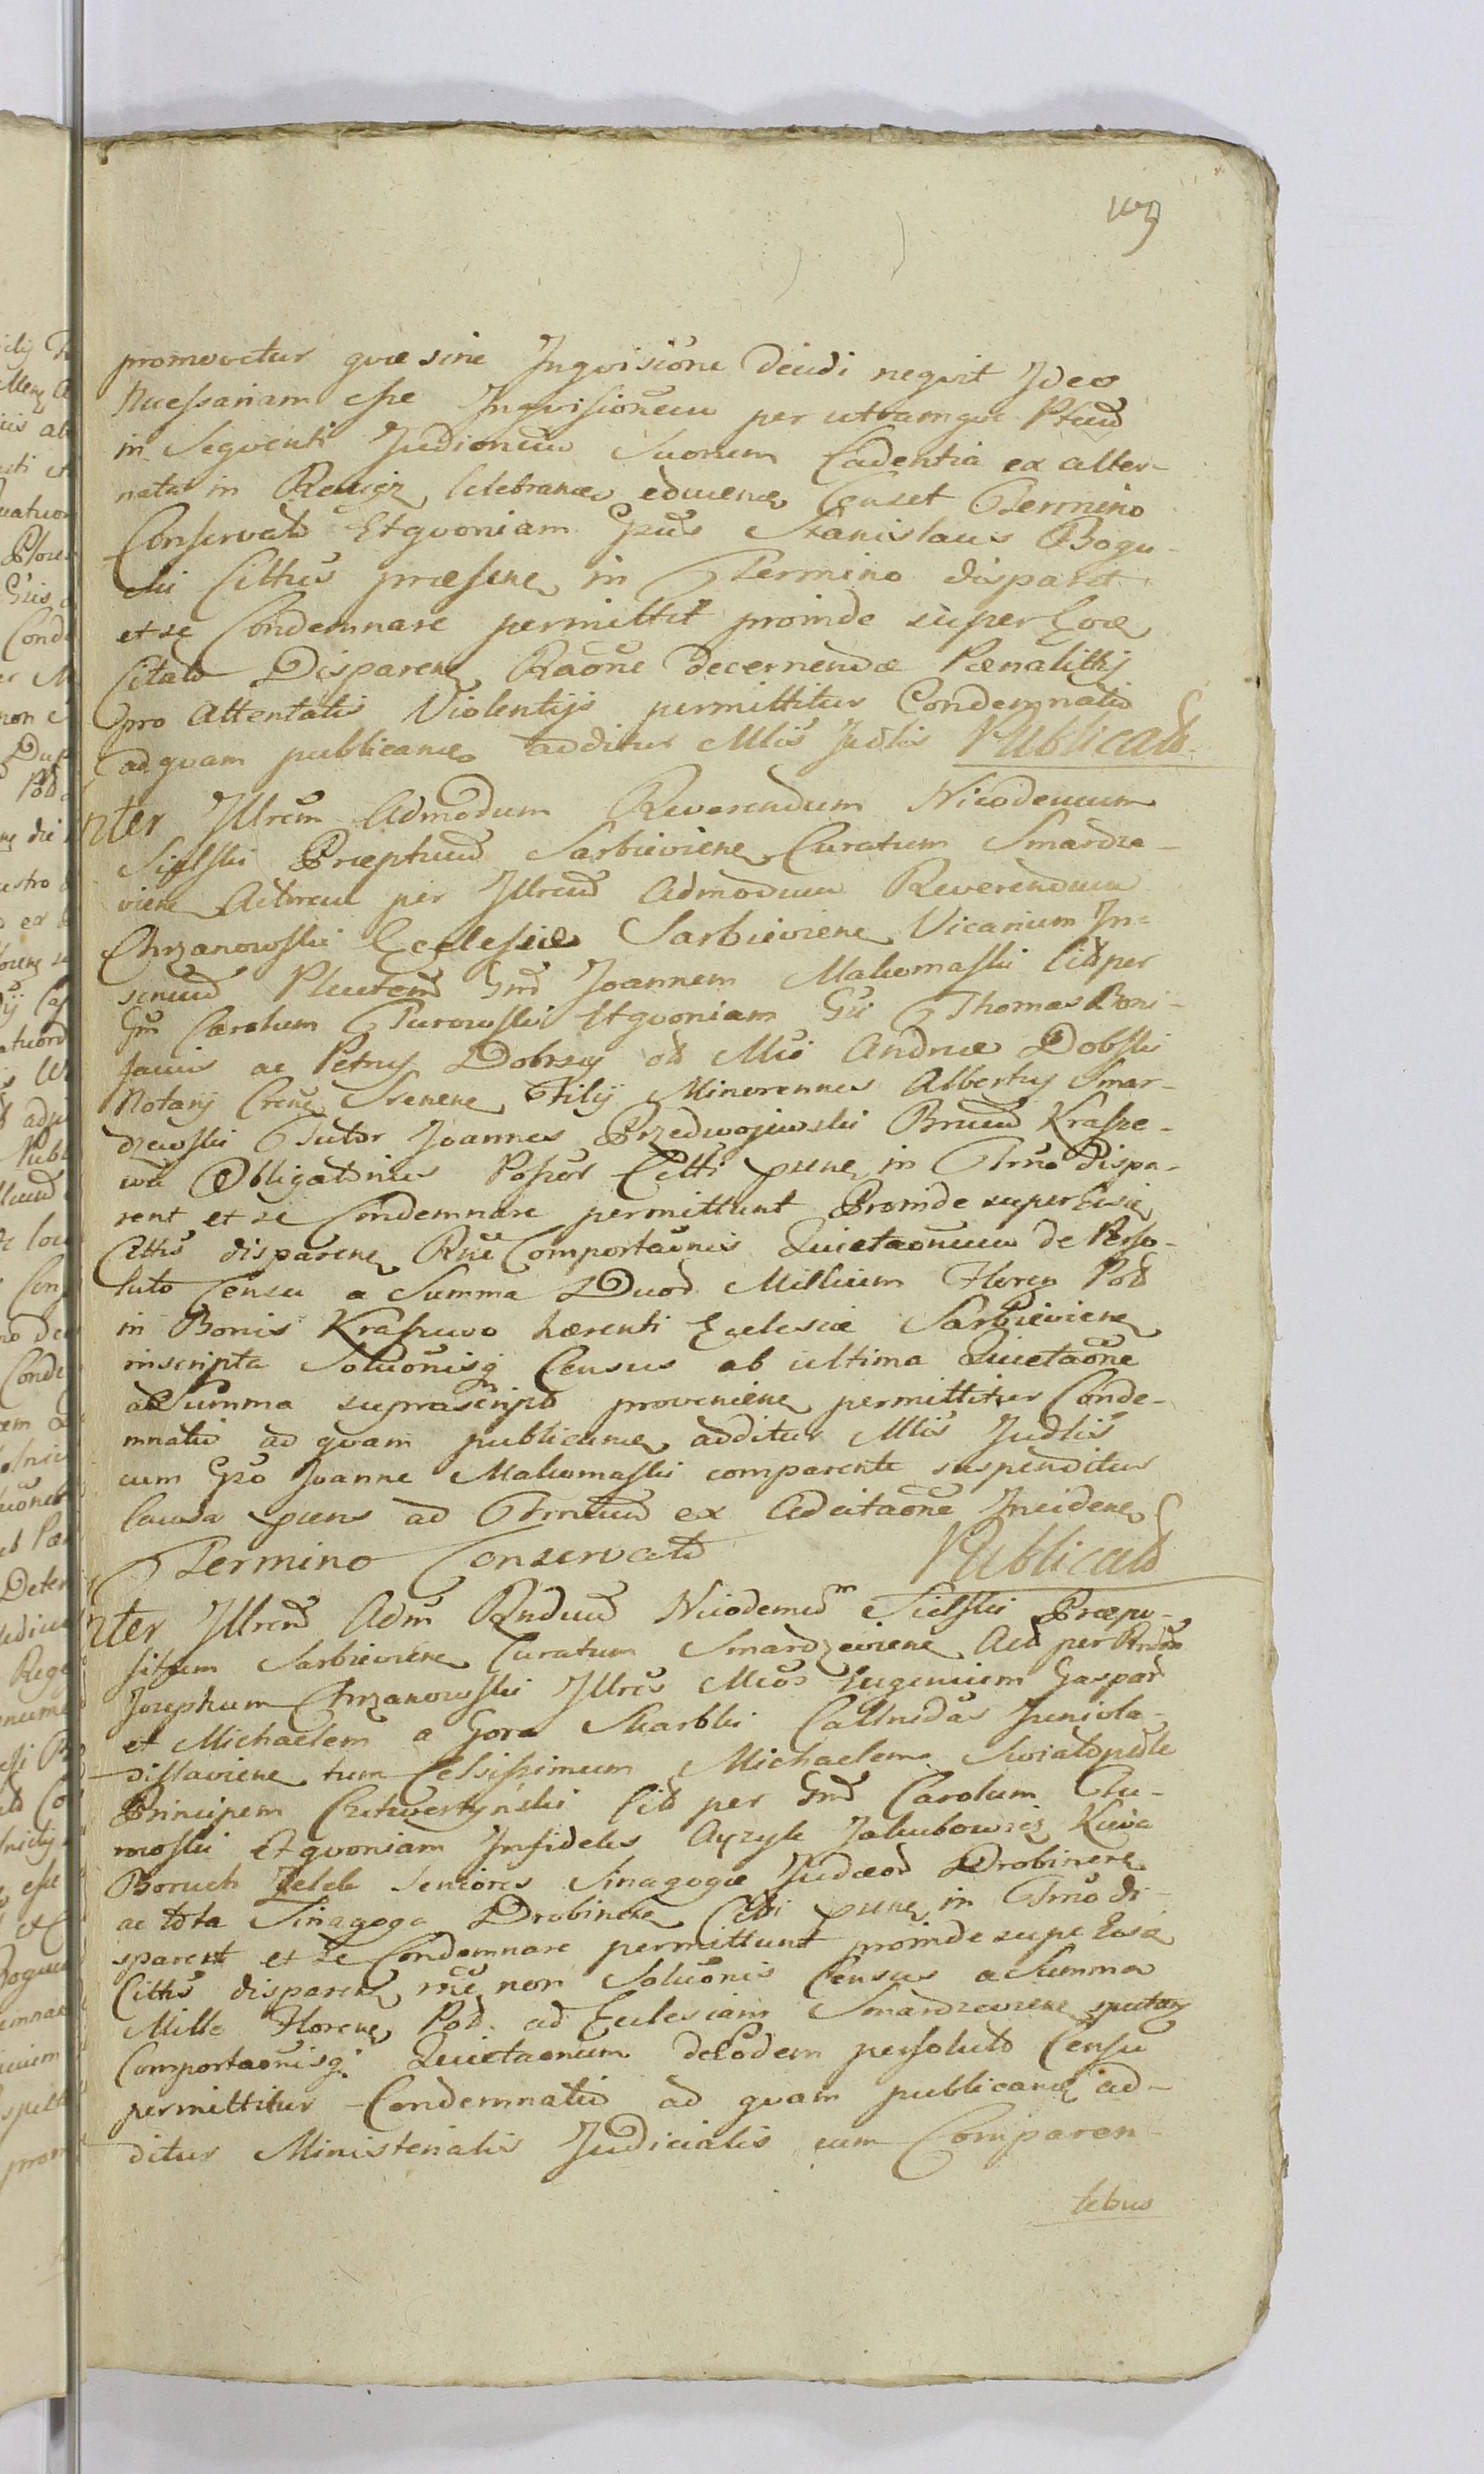 promovetur quae sine Inqvisione decidi neqvit Ideo
Necessariam esse Inqvisionem per utramqve Ptem
in Seqventi Judiorum Suorum Cadentia ex alter-
nata in Raciąż celebranda educenda Censet Termino
Conservato Etqvoniam Gnus Stanislaus Bogu-
cki Cittus praesens in Termino disparet
et se Condemnare permittit proinde super Eore
Citato Disparen Raone decernendae Paenalitts
pro Attentatis Violentijs permittitur Condemnatio
ad qvam publicanda additur Mlis Judlis Publicato
Inter Illrem Admodum Reverendum Nicodemum
Sielski Praeptum Sarbiewien Curatum Smardze-
vien Actorem per Illrem Admodum Reverendum
Chrzanowski Ecclesiae Sarbiewien Vicarium In-
Gnd Joannem Makomaski Citt per
Gm Carolum Turowski Etqvoniam Gsi Thomas Boni-
facius ac Petrus Dobrscy olt Mci Andreae Dobski
Notarij Crens Srenen Filij Minorennes Albertus Smar-
dzewski Tutor Joannes Przedwojewski Bnrum Krasze-
wo Obligatorius Possor Citti psens in Trno dispa-
rent et se Condemnare permittunt Proinde super Eisd
Cittis disparen Rne Comportaonis Quietaonum de Perso-
luto Censu a Summa Duor Millium Floren Pol
in Bonis Kraszewo haerenti Ecclesiae Sarbievien
inscripta Soluonisq Census ab ultima Quietaone
a Summa suprascripto provenien permittitur Conde-
mnatio ad qvam publicanda additur Mlis Judlis
cum Gso Joanne Makomaski comparente suspenditur
Causa psens ad Trnum ex Adcitaone Inciden
Termino Conservato Publicato
Inter Illrem Adm Rndum Nicodemum Sielski Praepo-
situm Sarbievien Curatum Smardzevien Act per Rndm
Josephum Chrzanowski Illres Mcos Eugenium Gaspar
et Michaelem a Gora Skarbki Juniola-
dislavien tum Celsissimum Michaelem Swiatopelk
Principem Czetwertynski Citt per Gnd Carolum Tu-
rowski Etqvoniam Infideles Ayzyk Jakubowicz Kiwa
Boruch Zelek Seniores Sinagogae Judaeor Drobinen
ac tota Sinagoga Drobinen Citti psens in Trno di-
sparent et se Condemnare permittunt proinde supe Eosd
Cittis disparen rne non Soluonis Census a Summa
Mille Floren Pol. ad Ecclesiam Smardzevien spectan
Comportaonisq Quietaonum de Eodem persoluto Censu
permittitur Condemnatio ad qvam publicanda ad-
ditur Ministerialis Judicialis cum Comparen-
tibus